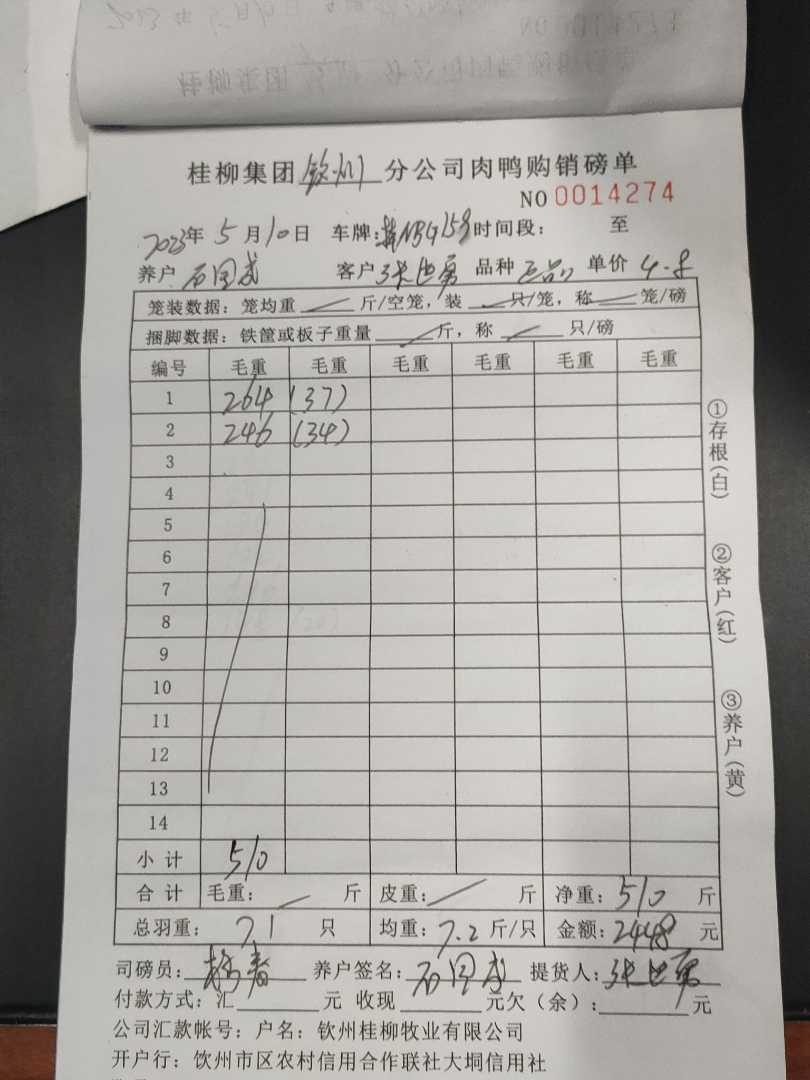 桂柳集团钦州分公司肉鸭购销磅单
NO 0014274
2023年5月10日 车牌: 时间段: 至
养户 客户 品种 单价 4.8
笼装数据: 笼均重 斤/空笼, 装 只/笼, 称 笼/磅
捆脚数据: 铁筐或板子重量 斤, 称 只/磅
编号 毛重 毛重 毛重 毛重 毛重 毛重
1 264 (37)
2 246 (34)
3
4
5
6
7
8
9
10
11
12
13
14
小计 510
合计 毛重: 斤 皮重: 斤 净重: 510 斤
总羽重: 71 只 均重: 7.2 斤/只 金额: 2448 元
司磅员: 养户签名: 提货人:
付款方式: 汇 元 收现 元欠(余): 元
公司汇款帐号: 户名: 钦州桂柳牧业有限公司
开户行: 钦州市区农村信用合作联社大垌信用社
①存根(白)
②客户(红)
③养户(黄)